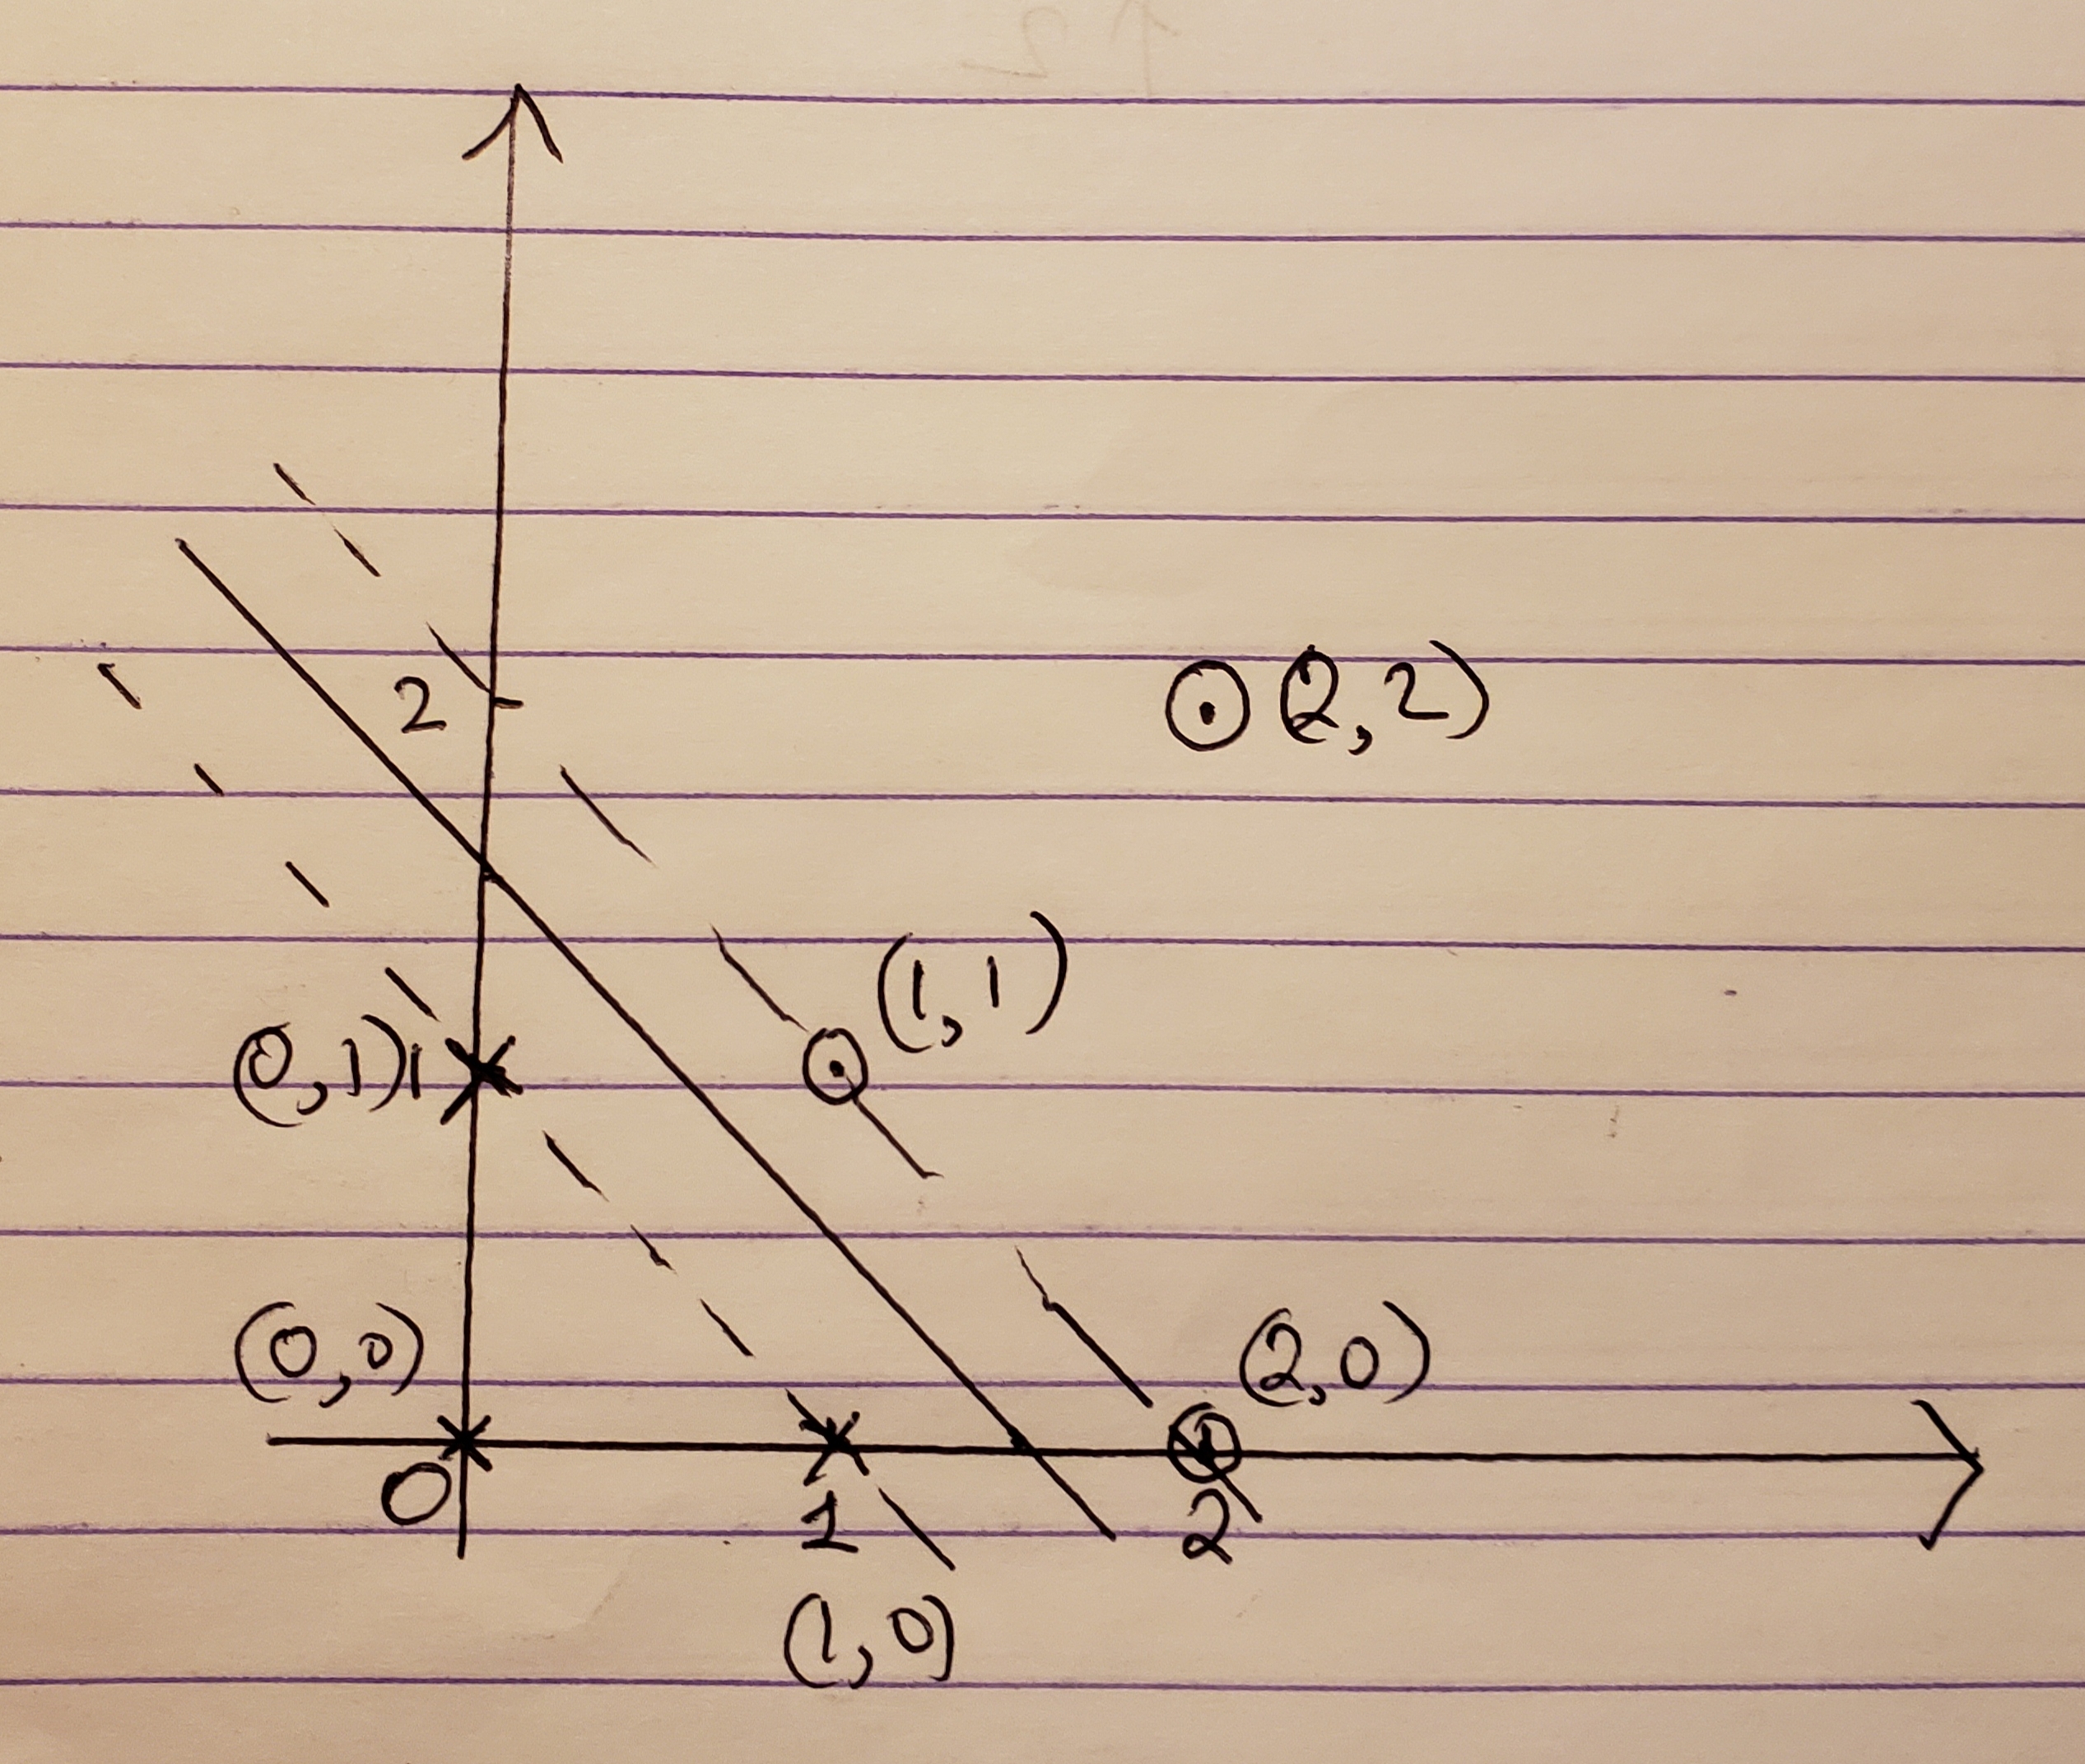 2
(2,2)
(1,1)
(0,1) 1
(0,0)
(2,0)
0
1
2
(1,0)